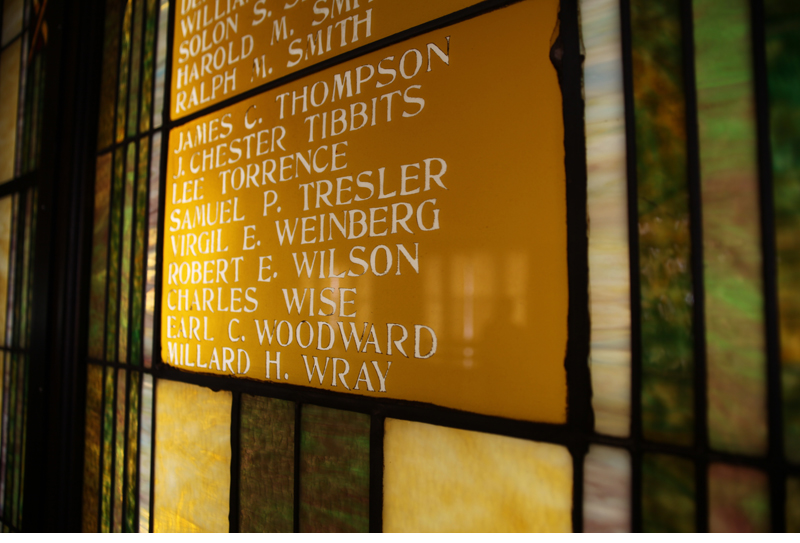 WILLIAM
SOLON S.
HAROLD M. SMITH
RALPH M. SMITH
JAMES C. THOMPSON
J. CHESTER TIBBITS
LEE TORRENCE
SAMUEL P. TRESLER
VIRGIL E. WEINBERG
ROBERT E. WILSON
CHARLES WISE
EARL C. WOODWARD
MILLARD H. WRAY